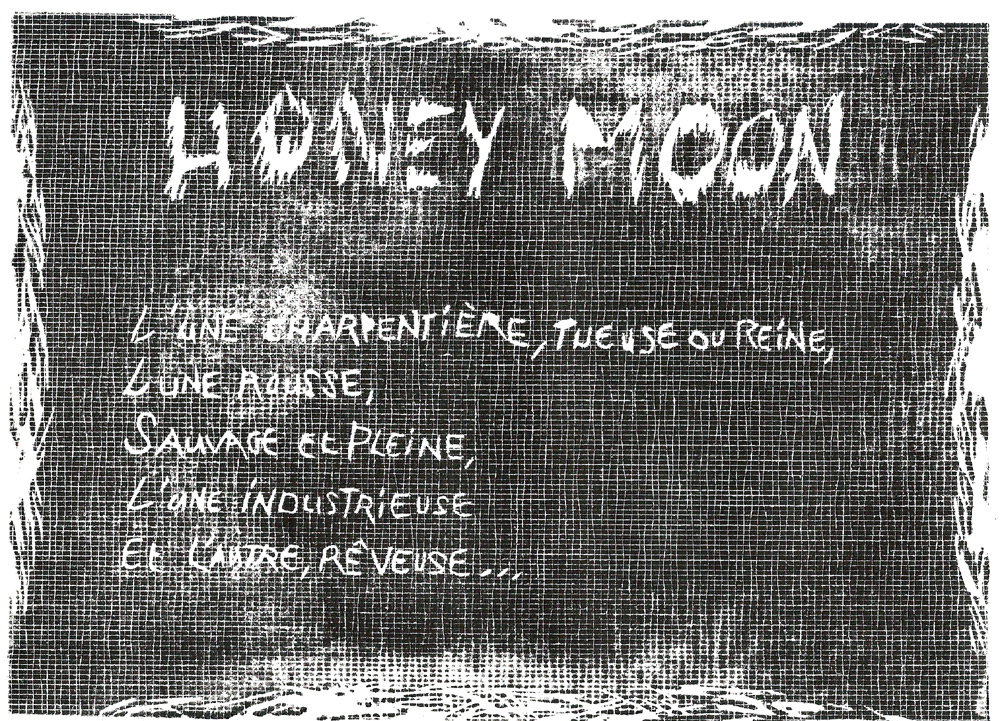 HONEY MOON
L'UNE CHARPENTIÈRE, TUEUSE OU REINE,
L'UNE ROUSSE,
SAUVAGE Et PLEINE,
L'UNE INDUSTRIEUSE
Et L'AUTRE, RÊVEUSE...